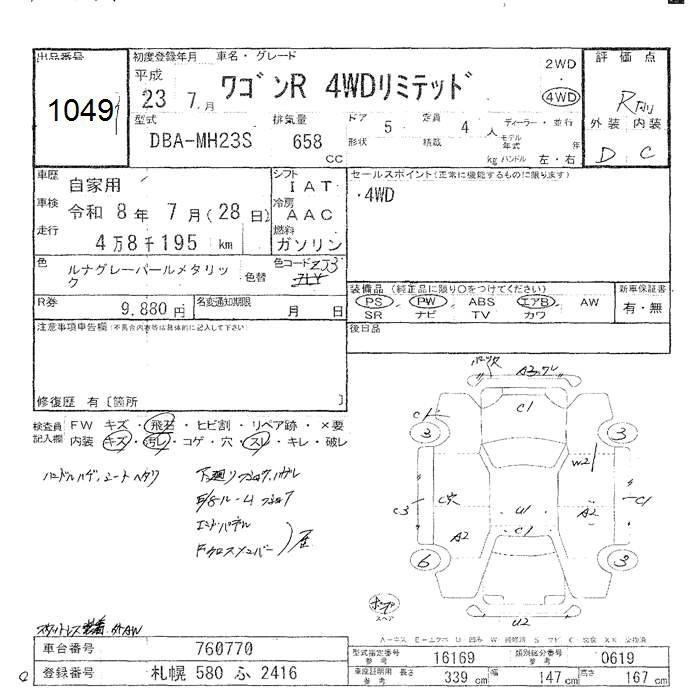 出品番号
1049
初度登録年月 車名・グレード
平成
23 7月
ワゴンR 4WDリミテッド
2WD
・
4WD
評価点
R
外装 内装
D C
型式
DBA-MH23S
排気量
658
CC
ドア 5
形状
定員 4 人
積載 kg
ディーラー・並行
モデル年式 年
ハンドル 左・右
車歴 自家用
シフト IAT
車検 令和 8年 7月(28日)
冷房 AAC
走行 4万8千195 km
燃料 ガソリン
セールスポイント(正常に機能するものに限ります)
・4WD
色 ルナグレーパールメタリック
色替
色コード ZJ3
R券 9,880円
名変通知期限 月 日
装備品(純正品に限り○をつけてください)
PS PW ABS エアB AW
SR ナビ TV カワ
新車保証書
有・無
注意事項申告欄(不具合内容等は具体的に記入して下さい)
後日品
修復歴 有〔箇所 〕
検査員記入欄
FW キズ・飛石・ヒビ割・リペア跡・×要
内装 キズ・汚レ・コゲ・穴・スレ・キレ・破レ
ハンドルハゲ、シートヘタリ
エンドパネル
Fクロスメンバー
C1
C1
3
3
W2
C3
C穴
U1
C1
A2
A2
C1
6
3
スペア
U2
車台番号 760770
登録番号 札幌 580 ふ 2416
型式指定番号 参考 16169
類別区分番号 参考 0619
車庫証明用 参考 長さ 339cm 幅 147cm 高さ 167cm